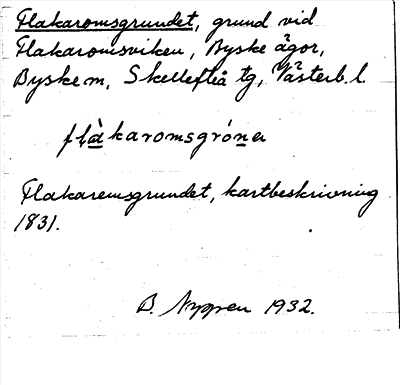 Flakaromsgrundet, grund vid
Flakaromsviken, Byske ägor,
Byske m, Skellefteå tg, Västerb. l.
flàkaromsgrónə
Flakaremsgrundet, kartbeskrivning
1831.
B. Nygren 1932.